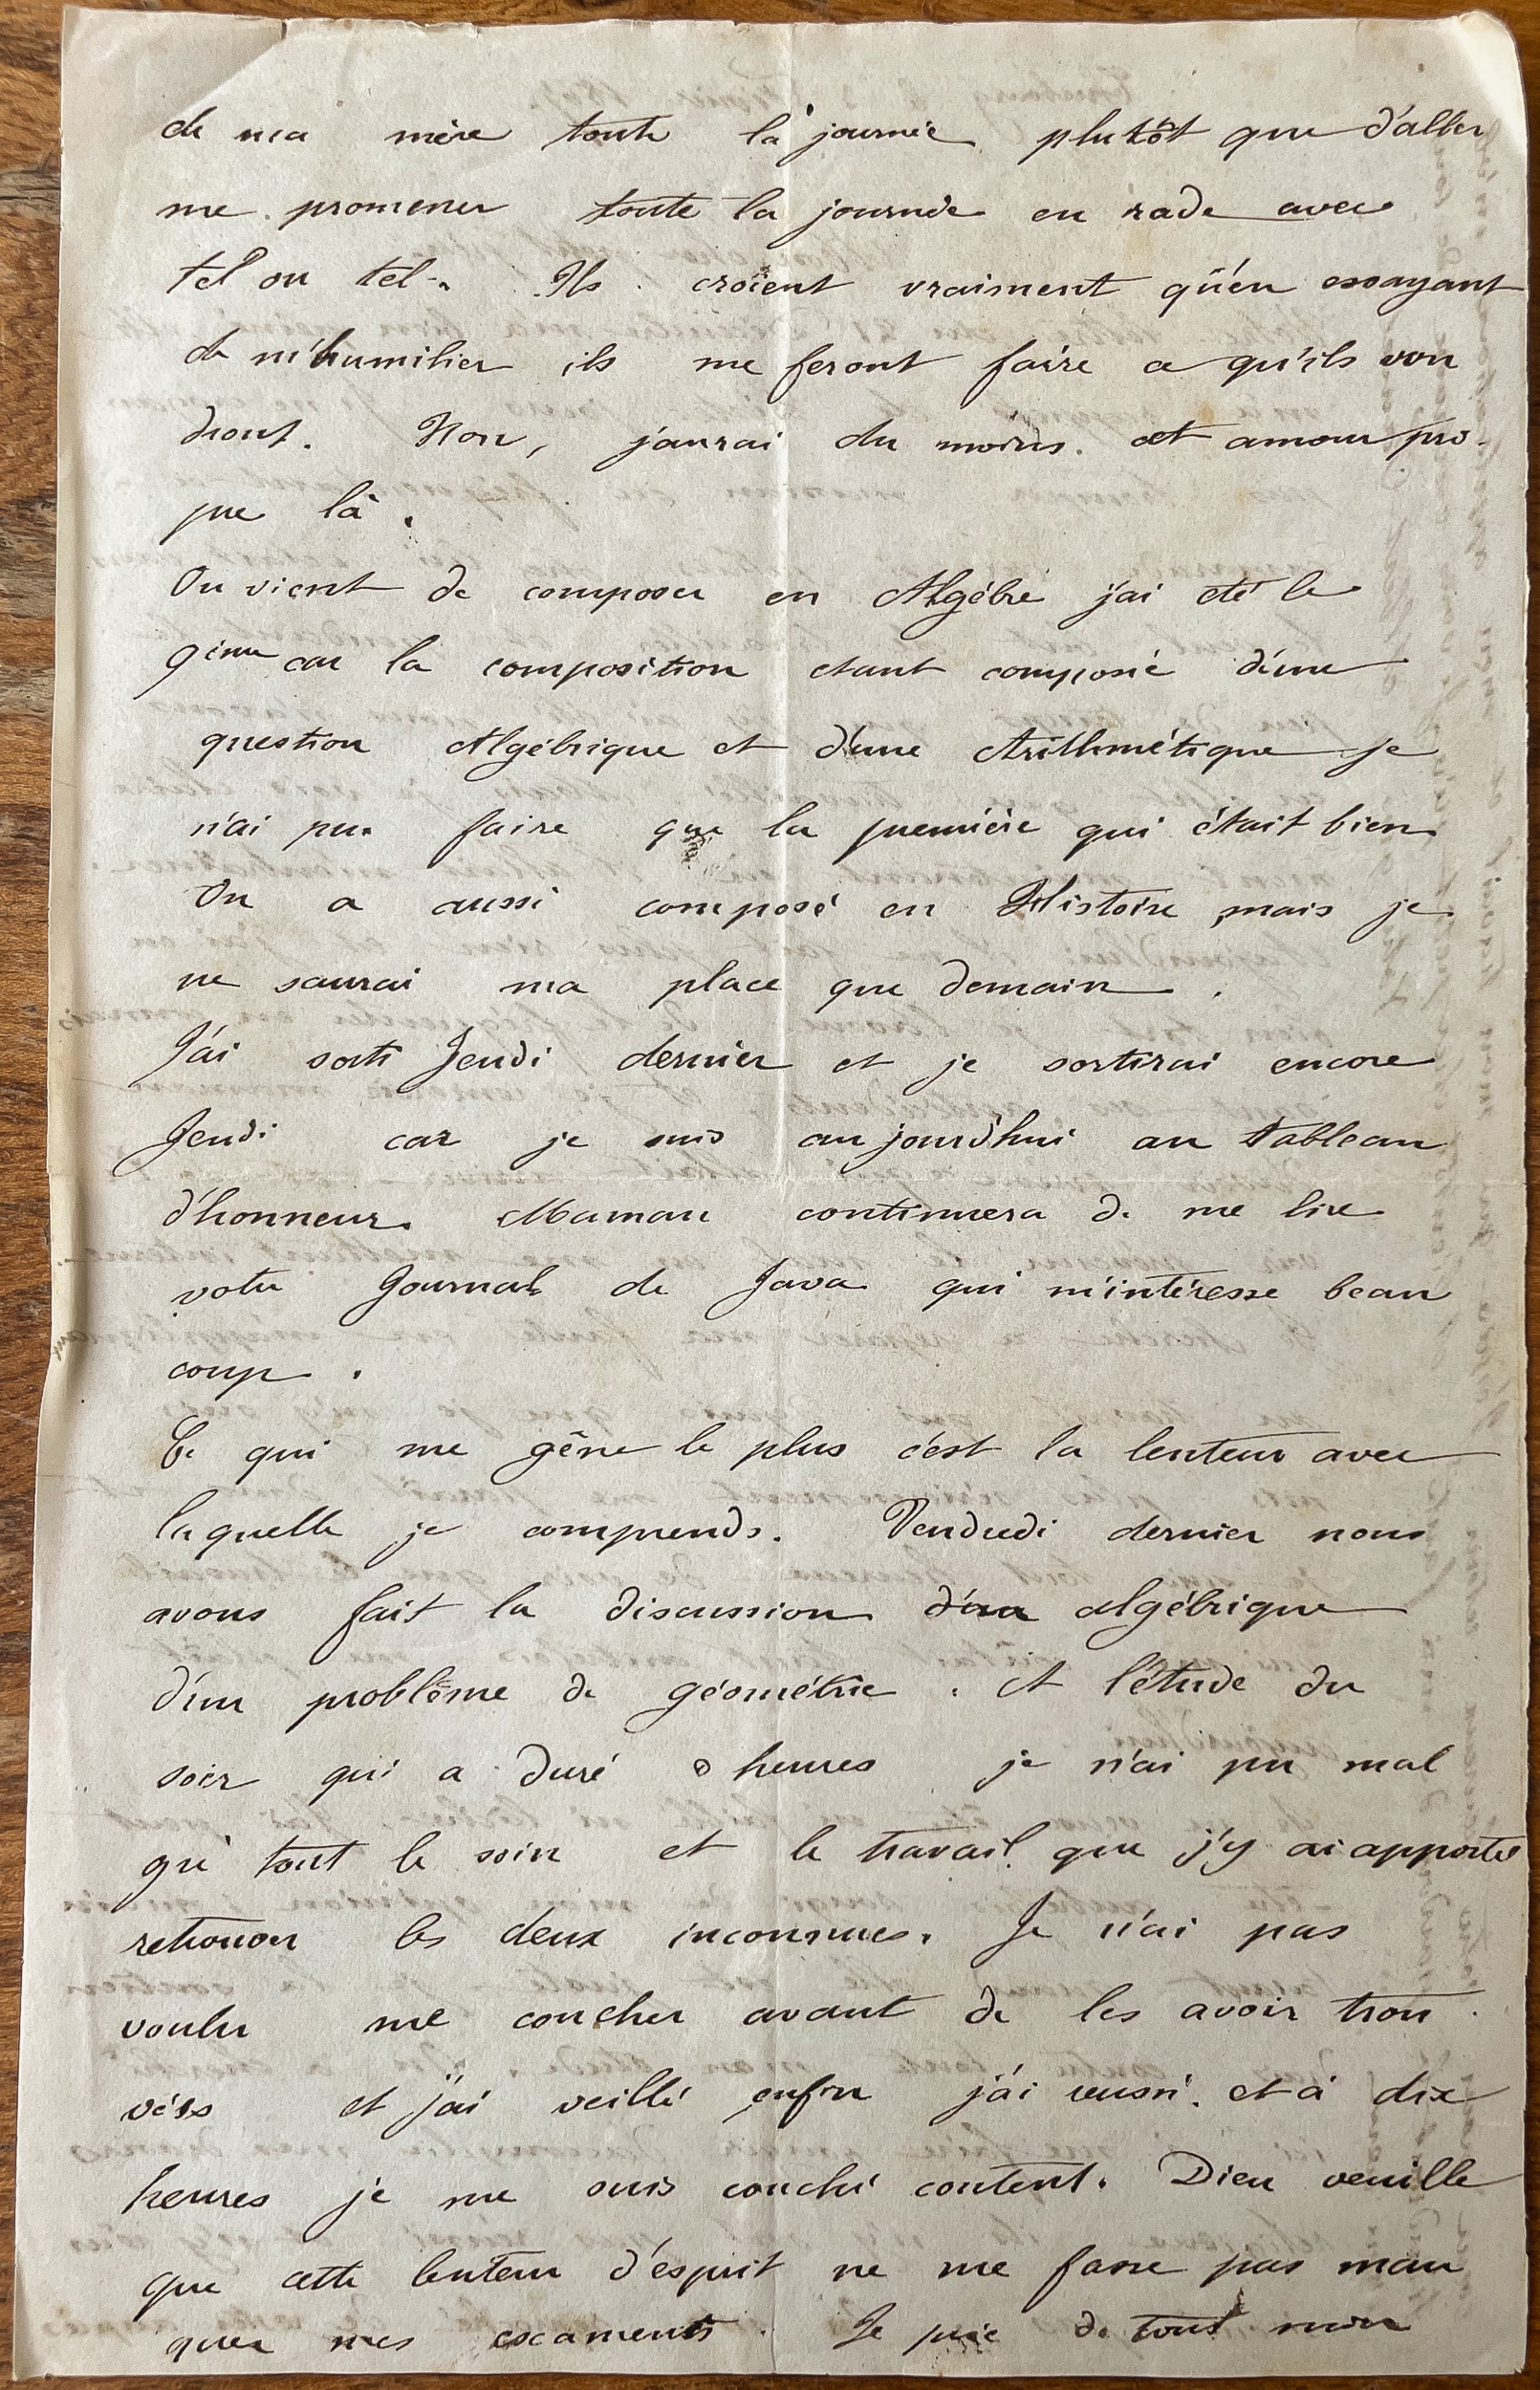 de ma mère toute la journée plutôt que d'aller
me promener toute la journée en rade avec
tel ou tel. Ils croient vraiment qu'en essayant
de m'humilier ils me feront faire ce qu'ils vou
dront. Non, j'aurai du moins cet amour pro-
pre là.
On vient de composer en Algèbre j'ai été le
9ième car la composition étant composée d'une
question Algébrique et d'une Arithmétique je
n'ai pu faire que la première qui était bien
On a aussi composé en Histoire mais je
ne saurai ma place que demain.
J'ai sorti Jeudi dernier et je sortirai encore
Jeudi car je suis aujourd'hui au tableau
d'honneur. Maman continuera de me lire
votre Journal de Java qui m'intéresse beau
coup.
Ce qui me gêne le plus c'est la lenteur avec
laquelle je comprends. Vendredi dernier nous
avons fait la discussion algébrique
d'un problème de géométrie. A l'étude du
soir qui a duré heures je n'ai pu mal
gré tout le soin et le travail que j'y ai apporté
retrouver les deux inconnues. Je n'ai pas
voulu me coucher avant de les avoir trou
vées et j'ai veillé enfin j'ai reussi. et à dix
heures je me suis couché content. Dieu veuille
que cette lenteur d'esprit ne me fasse pas man
quer mes examents. Je prie de tout mon